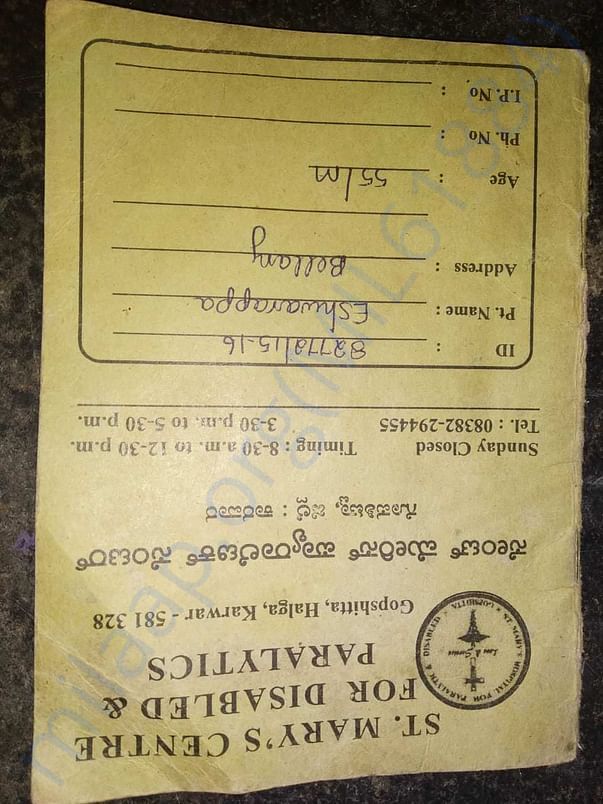 ST. MARY'S CENTRE
FOR DISABLED &
PARALYTICS
Gopshitta, Halga, Karwar - 581 328
ಸೇಂಟ್ ಮೇರಿಸ್ ಪ್ಯಾರಾಲಿಟಿಕ್ ಸೆಂಟರ್
ಗೋಪಶಿಟ್ಟಾ, ಜಿಲ್ಲೆ : ಕಾರವಾರ
Sunday Closed Timing : 8-30 a.m. to 12-30 p.m.
Tel. : 08382-294455 3-30 p.m. to 5-30 p.m.
ID : 82772/15-16
Pt. Name : Eshwarappa
Address : Bellary
Age : 55/m
Ph. No :
I.P. No :
ST. MARY'S HOSPITAL FOR PARALYTIC & DISABLED
GOPSHITTA
Love & Service
milaap.org